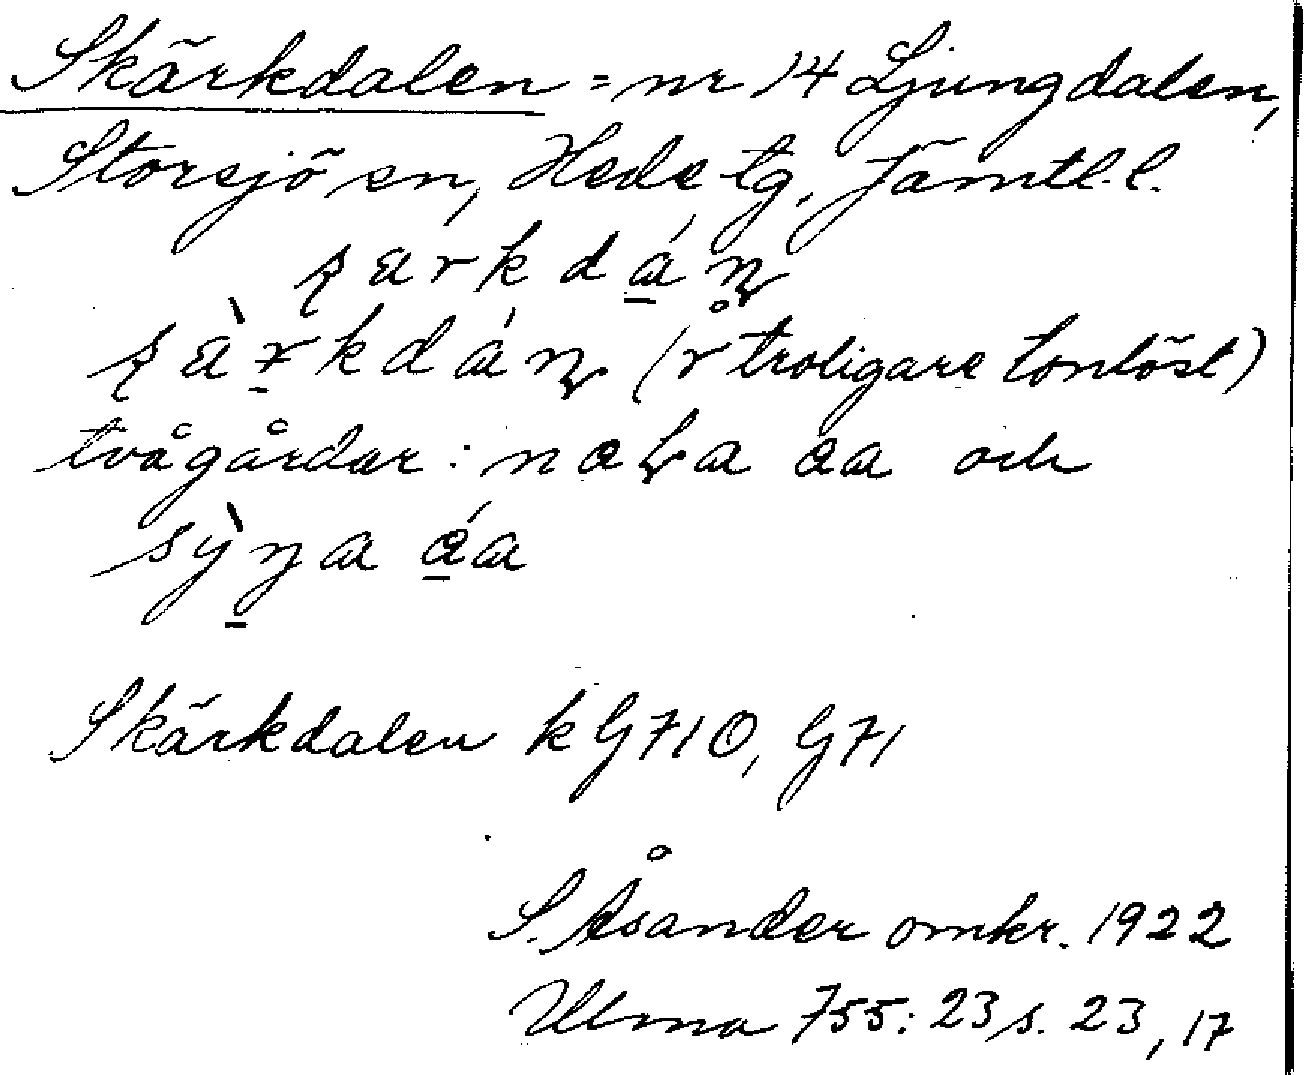 Skärkdalen = nr 14 Ljungdalen,
Storsjö sn, Hede tg. Jämtl. l.
(r̊ troligare tonlöst)
tvågårdar: och
Skärkdalen k G710, G71
S. Åsander omkr. 1922
Ulma 755: 23 s. 23, 17